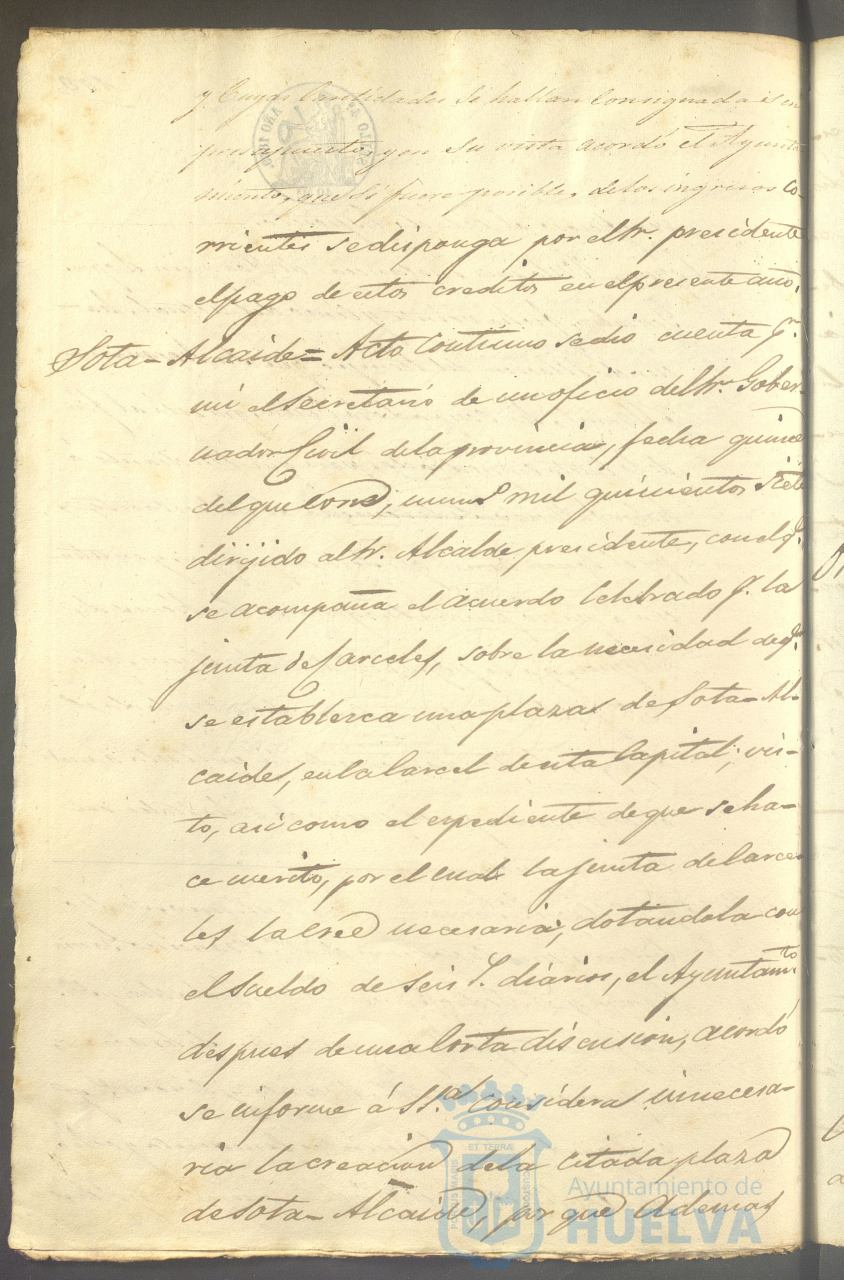 y cuyas cantidades se hallan consignadas en
presupuesto, y en su vista acordó el Ayunta
miento, que si fuere posible, de los ingresos co-
rrientes se disponga por el Sr. presidente
el pago de estos creditos en el presente año.
Sota-Alcaide = Acto continuo se dio cuenta pr.
mi el Secretario de un oficio del Sr. Gober-
nador Civil de la provincia, fecha quince
del que corre, numo mil quinientos siete
dirijido al Sr. Alcalde presidente, con el q.
se acompaña el acuerdo celebrado p. la
junta de Carceles, sobre la necesidad de qe.
se establezca una plaza de Sota-Al-
caide, en la Carcel de esta Capital; vis-
to, asi como el espediente de que se ha-
ce merito, por el cual la junta de Carce-
les la cree necesaria, dotandola con
el sueldo de seis r. diarios, el Ayuntamto
despues de una corta discusion, acordó
se informe á S.Sa. considera innecesa-
ria la creacion de la citada plaza
de Sota-Alcaide, por que Ademas
SELLO 4º
AÑO 1861
ET TERRÆ
PORTUS MARIS
CUSTODIA
Ayuntamiento de
HUELVA